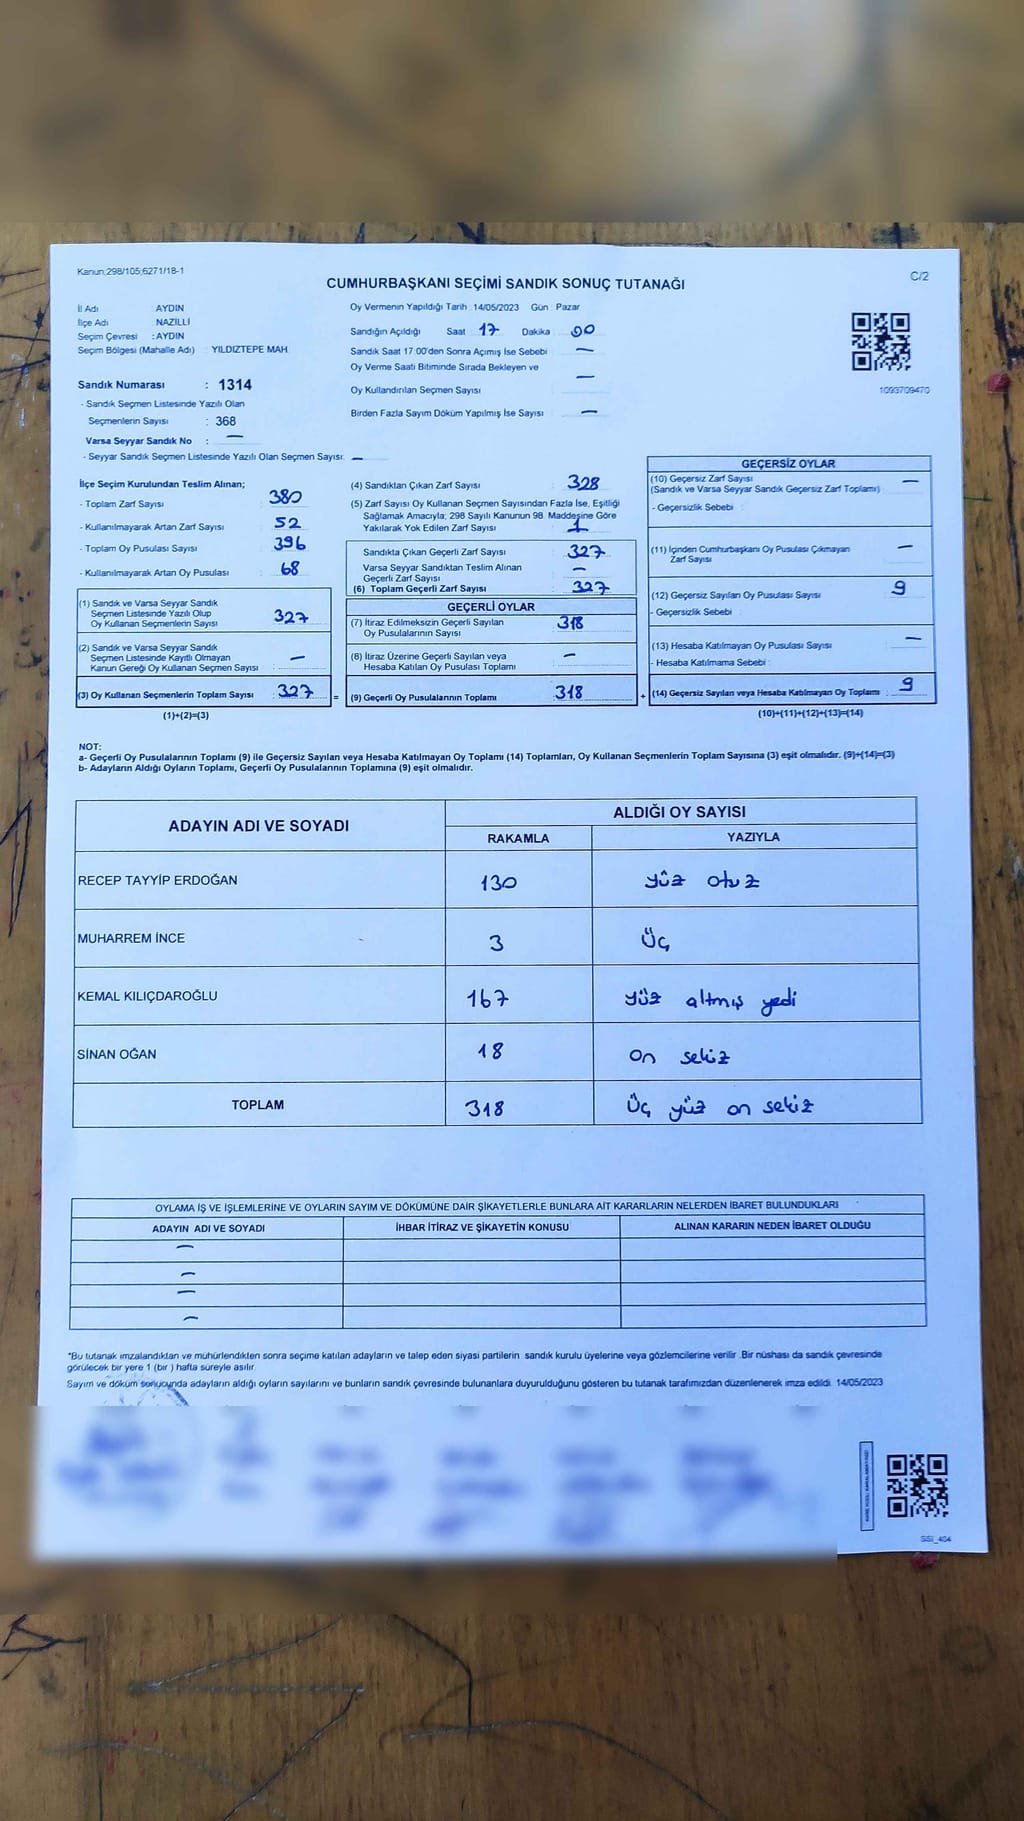 Kanun:298/105;6271/18-1
C/2
CUMHURBAŞKANI SEÇİMİ SANDIK SONUÇ TUTANAĞI
İl Adı : AYDIN
İlçe Adı : NAZİLLİ
Seçim Çevresi : AYDIN
Seçim Bölgesi (Mahalle Adı) : YILDIZTEPE MAH.
Sandık Numarası : 1314
- Sandık Seçmen Listesinde Yazılı Olan
Seçmenlerin Sayısı : 368
Varsa Seyyar Sandık No : —
- Seyyar Sandık Seçmen Listesinde Yazılı Olan Seçmen Sayısı: —
Oy Vermenin Yapıldığı Tarih : 14/05/2023 Gün : Pazar
Sandığın Açıldığı Saat 17 Dakika : 00
Sandık Saat 17:00'den Sonra Açımış İse Sebebi —
Oy Verme Saati Bitiminde Sırada Bekleyen ve —
Oy Kullandırılan Seçmen Sayısı
Birden Fazla Sayım Döküm Yapılmış İse Sayısı —
1093709470
İlçe Seçim Kurulundan Teslim Alınan;
- Toplam Zarf Sayısı : 380
- Kullanılmayarak Artan Zarf Sayısı : 52
- Toplam Oy Pusulası Sayısı : 396
- Kullanılmayarak Artan Oy Pusulası : 68
(1) Sandık ve Varsa Seyyar Sandık
Seçmen Listesinde Yazılı Olup
Oy Kullanan Seçmenlerin Sayısı : 327
(2) Sandık ve Varsa Seyyar Sandık
Seçmen Listesinde Kayıtlı Olmayan
Kanun Gereği Oy Kullanan Seçmen Sayısı : —
(3) Oy Kullanan Seçmenlerin Toplam Sayısı : 327 =
(1)+(2)=(3)
(4) Sandıktan Çıkan Zarf Sayısı : 328
(5) Zarf Sayısı Oy Kullanan Seçmen Sayısından Fazla İse, Eşitliği
Sağlamak Amacıyla; 298 Sayılı Kanunun 98. Maddesine Göre
Yakılarak Yok Edilen Zarf Sayısı : 1
Sandıkta Çıkan Geçerli Zarf Sayısı : 327
Varsa Seyyar Sandıktan Teslim Alınan
Geçerli Zarf Sayısı : —
(6) Toplam Geçerli Zarf Sayısı : 327
GEÇERLİ OYLAR
(7) İtiraz Edilmeksizin Geçerli Sayılan
Oy Pusulalarının Sayısı : 318
(8) İtiraz Üzerine Geçerli Sayılan veya
Hesaba Katılan Oy Pusulası Toplamı : —
(9) Geçerli Oy Pusulalarının Toplamı : 318 +
GEÇERSİZ OYLAR
(10) Geçersiz Zarf Sayısı —
(Sandık ve Varsa Seyyar Sandık Geçersiz Zarf Toplamı) :
- Geçersizlik Sebebi :
(11) İçinden Cumhurbaşkanı Oy Pusulası Çıkmayan
Zarf Sayısı : —
(12) Geçersiz Sayılan Oy Pusulası Sayısı : 9
- Geçersizlik Sebebi :
(13) Hesaba Katılmayan Oy Pusulası Sayısı : —
- Hesaba Katılmama Sebebi :
(14) Geçersiz Sayılan veya Hesaba Katılmayan Oy Toplamı : 9
(10)+(11)+(12)+(13)=(14)
NOT:
a- Geçerli Oy Pusulalarının Toplamı (9) ile Geçersiz Sayılan veya Hesaba Katılmayan Oy Toplamı (14) Toplamları, Oy Kullanan Seçmenlerin Toplam Sayısına (3) eşit olmalıdır. (9)+(14)=(3)
b- Adayların Aldığı Oyların Toplamı, Geçerli Oy Pusulalarının Toplamına (9) eşit olmalıdır.
ADAYIN ADI VE SOYADI ALDIĞI OY SAYISI
RAKAMLA YAZIYLA
RECEP TAYYİP ERDOĞAN 130 yüz otuz
MUHARREM İNCE 3 üç
KEMAL KILIÇDAROĞLU 167 yüz altmış yedi
SİNAN OĞAN 18 on sekiz
TOPLAM 318 üç yüz on sekiz
OYLAMA İŞ VE İŞLEMLERİNE VE OYLARIN SAYIM VE DÖKÜMÜNE DAİR ŞİKAYETLERLE BUNLARA AİT KARARLARIN NELERDEN İBARET BULUNDUKLARI
ADAYIN ADI VE SOYADI İHBAR İTİRAZ VE ŞİKAYETİN KONUSU ALINAN KARARIN NEDEN İBARET OLDUĞU
—
—
—
—
*Bu tutanak imzalandıktan ve mühürlendikten sonra seçime katılan adayların ve talep eden siyasi partilerin sandık kurulu üyelerine veya gözlemcilerine verilir. Bir nüshası da sandık çevresinde
görülecek bir yere 1 (bir ) hafta süreyle asılır.
Sayım ve döküm sonucunda adayların aldığı oyların sayılarını ve bunların sandık çevresinde bulunanlara duyurulduğunu gösteren bu tutanak tarafımızdan düzenlenerek imza edildi. 14/05/2023
SSI_404